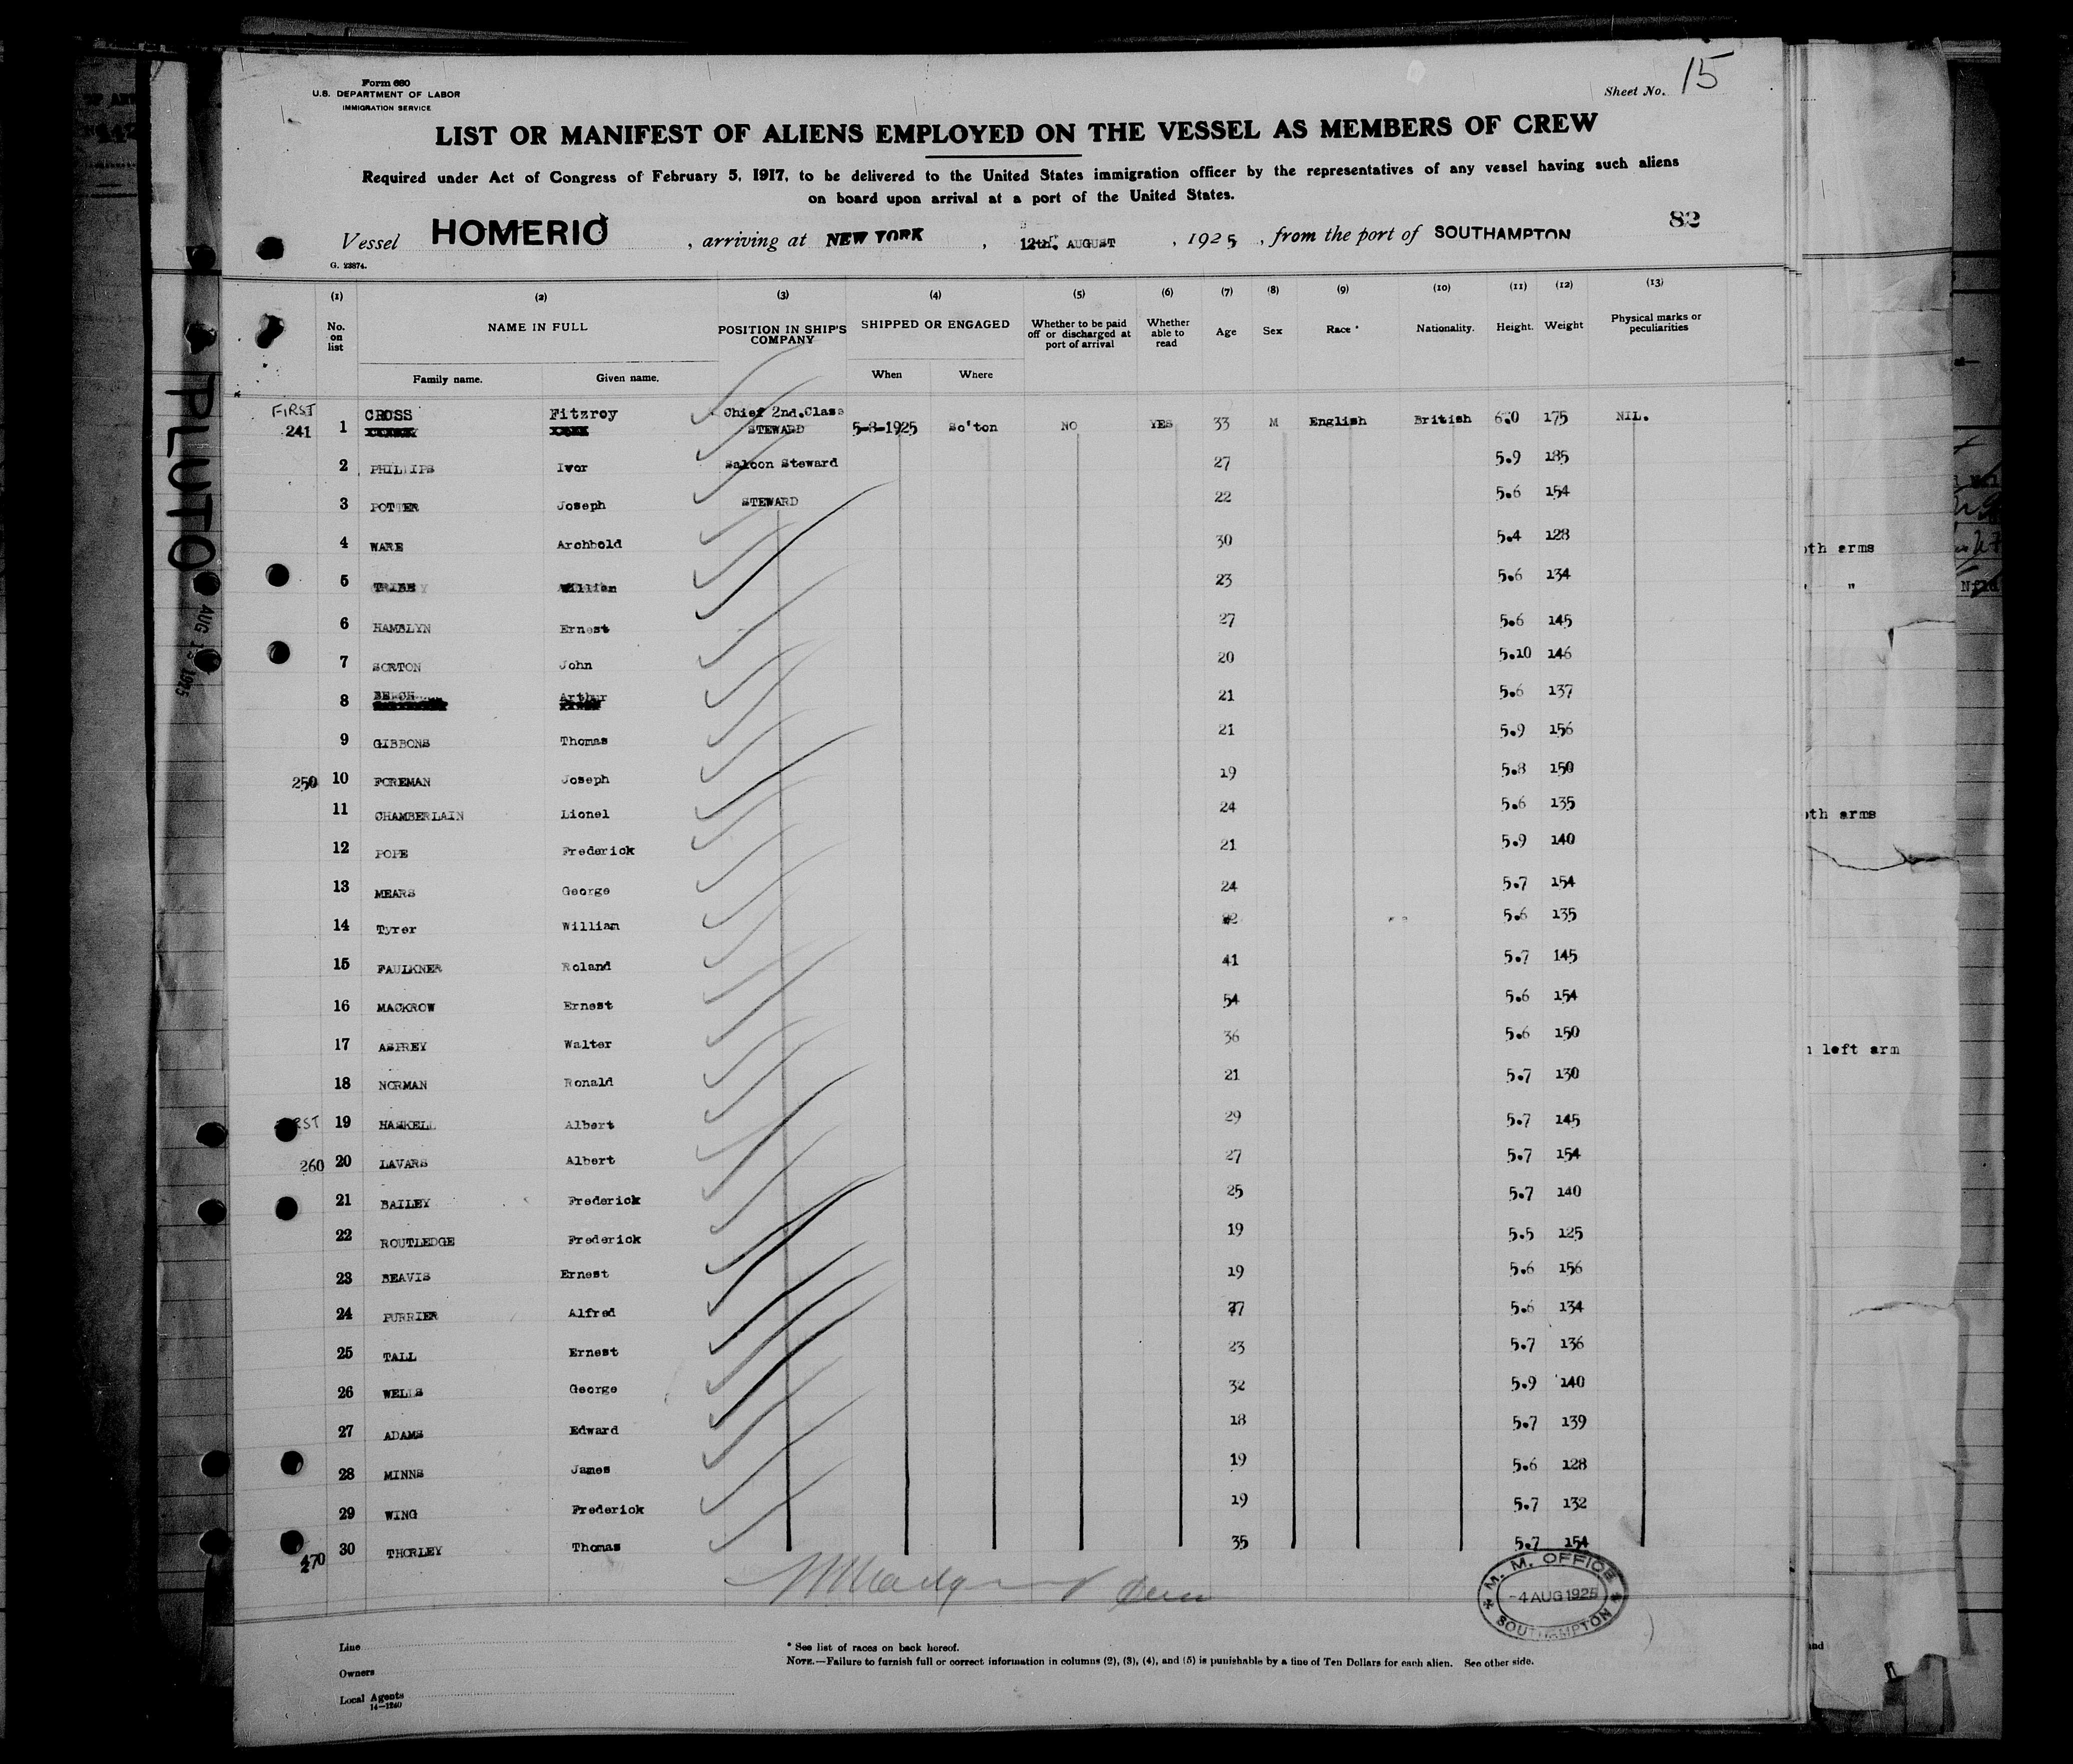 Form 680
U.S. DEPARTMENT OF LABOR
IMMIGRATION SERVICE
Sheet No. 15
LIST OR MANIFEST OF ALIENS EMPLOYED ON THE VESSEL AS MEMBERS OF CREW
Required under Act of Congress of February 5, 1917, to be delivered to the United States immigration officer by the representatives of any vessel having such aliens
on board upon arrival at a port of the United States.
82
Vessel HOMERIC, arriving at NEW YORK, 12th. AUGUST, 1925, from the port of SOUTHAMPTON
G. 23874.
(1) (2) (3) (4) (5) (6) (7) (8) (9) (10) (11) (12) (13)
No. on list NAME IN FULL POSITION IN SHIP'S COMPANY SHIPPED OR ENGAGED Whether to be paid off or discharged at port of arrival Whether able to read Age Sex Race * Nationality. Height. Weight Physical marks or peculiarities
Family name. Given name. When Where
FIRST 241 1 CROSS Fitzroy Chief 2nd.Class STEWARD 5-8-1925 So'ton NO YES 33 M English British 6.0 175 NIL.
2 PHILLIPS Ivor Saloon Steward 27 5.9 185
3 POTTER Joseph STEWARD 22 5.6 154
4 WARE Archbold 30 5.4 128
5 William 23 5.6 134
6 HAMBLYN Ernest 27 5.6 145
7 SORTON John 20 5.10 146
8 BEECH Arthur 21 5.6 137
9 GIBBONS Thomas 21 5.9 156
250 10 FOREMAN Joseph 19 5.8 150
11 CHAMBERLAIN Lionel 24 5.6 135
12 POPE Frederick 21 5.9 140
13 MEARS George 24 5.7 154
14 Tyrer William 5.6 135
15 FAULKNER Roland 41 5.7 145
16 MACKROW Ernest 54 5.6 154
17 ASPREY Walter 36 5.6 150
18 NORMAN Ronald 21 5.7 130
19 HASKELL Albert 29 5.7 145
260 20 LAVARS Albert 27 5.7 154
21 BAILEY Frederick 25 5.7 140
22 ROUTLEDGE Frederick 19 5.5 125
23 BEAVIS Ernest 19 5.6 156
24 PURRIER Alfred 27 5.6 134
25 TALL Ernest 23 5.7 136
26 WELLS George 32 5.9 140
27 ADAMS Edward 18 5.7 139
28 MINNS James 19 5.6 128
29 WING Frederick 19 5.7 132
270 30 THORLEY Thomas 35 5.7 154
M. M. OFFICE
-4 AUG 1925
SOUTHAMPTON
Line
Owners
Local Agents
14-1240
* See list of races on back hereof.
NOTE.—Failure to furnish full or correct information in columns (2), (3), (4), and (5) is punishable by a fine of Ten Dollars for each alien. See other side.
PLUTO
AUG 13 1925
oth arms
"
oth arms
left arm
Nfld